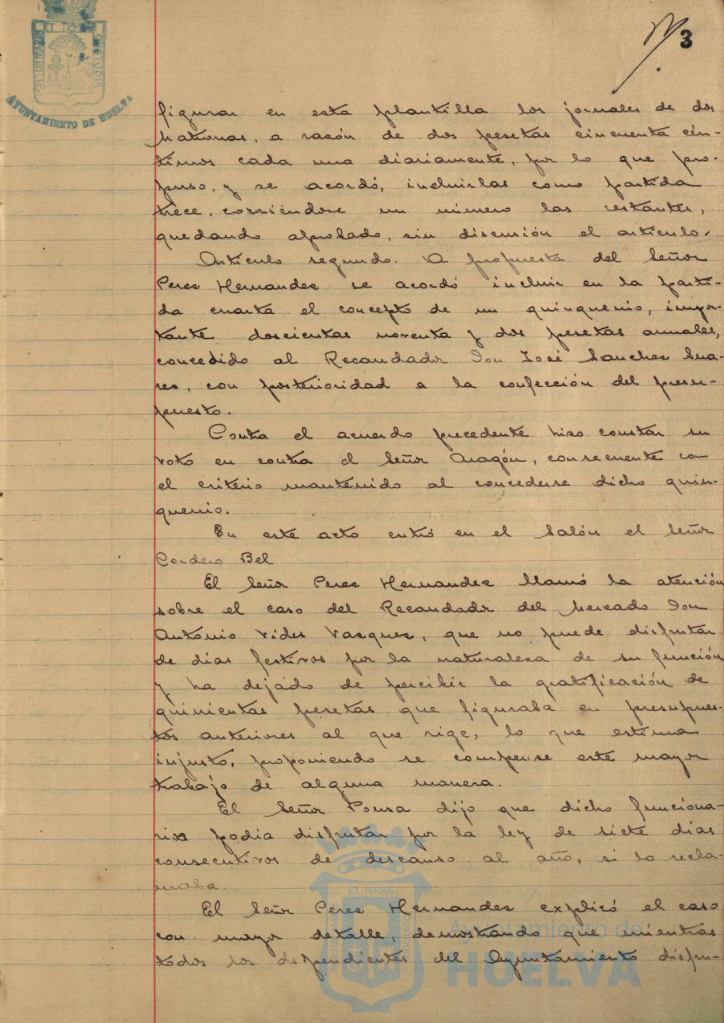 3
AYUNTAMIENTO DE HUELVA
figurar en esta plantilla los jornales de dos
matronas, a razón de dos pesetas cincuenta cén-
timos cada una diariamente, por lo que pro-
puso, y se acordó, incluirlas como partida
trece, corriéndose un número las restantes,
quedando aprobado, sin discusión el artículo.
Artículo segundo. A propuesta del Señor
Peres Hernandes se acordó incluir en la parti-
da cuarta el concepto de un quinquenio, impor-
tante doscientas noventa y dos pesetas anuales,
concedido al Recaudador Don José Sanches Sua-
res, con posterioridad a la confección del presu-
puesto.
Contra el acuerdo precedente hizo constar su
voto en contra el Señor Aragón, consecuente con
el criterio mantenido al concederse dicho quin-
quenio.
En este acto entró en el Salón el Señor
Cordero Bel
El Señor Peres Hernandes llamó la atención
sobre el caso del Recaudador del Mercado Don
Antonio Vides Vasques, que no puede disfrutar
de dias festivos por la naturaleza de su función
y ha dejado de percibir la gratificación de
quinientas pesetas que figuraba en presupues-
tos anteriores al que rige, lo que estima
injusto, proponiendo se compense este mayor
trabajo de alguna manera.
El Señor Ponsa dijo que dicho funciona-
rio podia disfrutar por la ley de siete dias
consecutivos de descanso al año, si lo recla-
maba.
El Señor Peres Hernandes explicó el caso
con mayor detalle, demostrando que mientras
todos los dependientes del Ayuntamiento disfru-
Ayuntamiento de
HUELVA